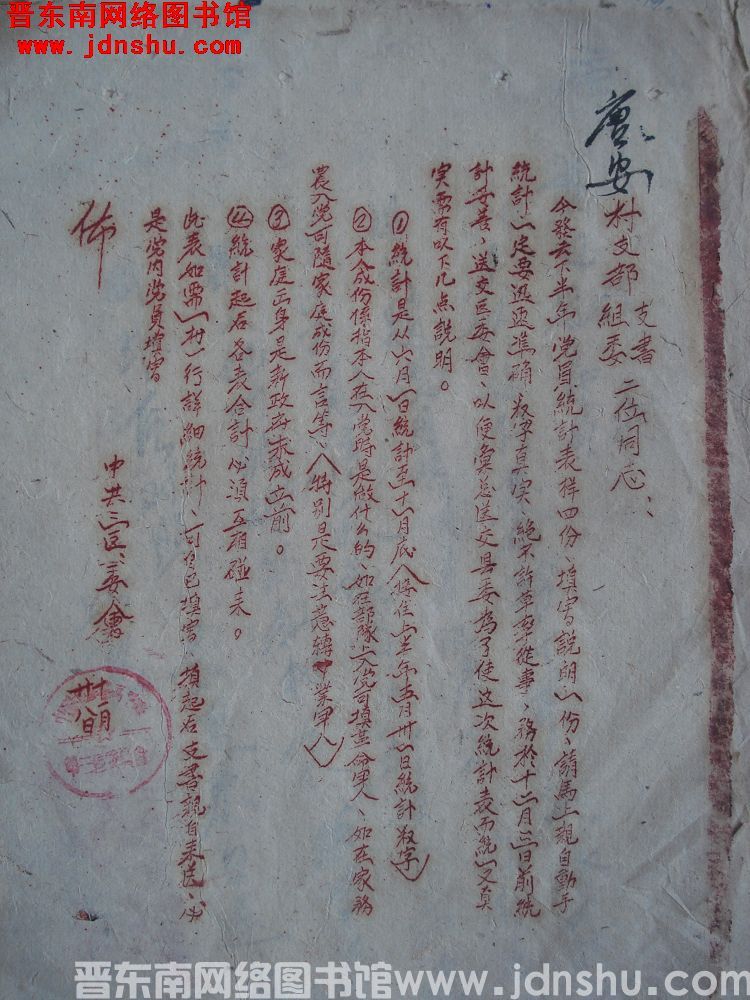 晋东南网络图书馆
www.jdnshu.com
唐安村支部
支書
組委
二位同志：
今發去下半年党員統計表样四份、填寫說明一份、請馬上親自動手
統計一定要迅速準確数字真实、絕不許草率從事、務於十二月三日前統
計妥善、送交区委會、以便彙总送交县委為了使这次統計表而統一又真
实需有以下几点說明。
①統計是从六月一日統計至十一月底（接住上半年五月卅一日統計数字）
②本人成份係指本人在入党時是做什么的、如在部隊上入党可填革命军人、如在家務
農入党可隨家庭成份而言等、（特别是要注意轉業军人）
③家庭出身是新政府未成立前。
④統計起后各表合計必須互相碰来。
此表如需（村）行詳細統計、可自己填寫、填起后支書親自来送、必
是党内党員填寫
佈
中共三区委會
卅頒
晋东南网络图书馆www.jdnshu.com